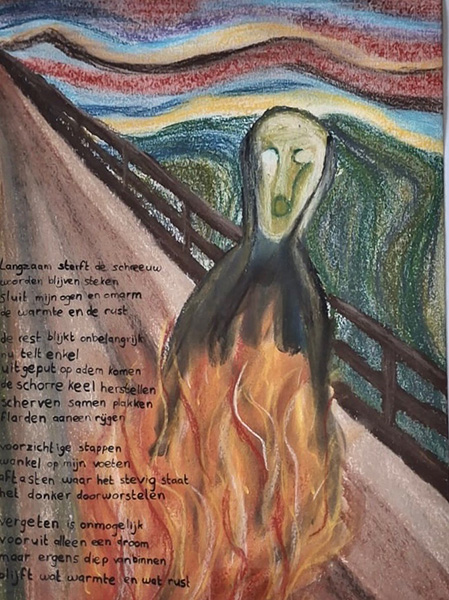 Langzaam sterft de schreeuw
woorden blijven steken
sluit mijn ogen en omarm
de warmte en de rust
de rest blijkt onbelangrijk
nu telt enkel
uitgeput op adem komen
de schorre keel herstellen
scherven samen plakken
flarden aaneen rijgen
voorzichtige stappen
wankel op mijn voeten
aftasten waar het stevig staat
het donker doorworstelen
vergeten is onmogelijk
vooruit alleen een droom
maar ergens diep vanbinnen
blijft wat warmte en wat rust